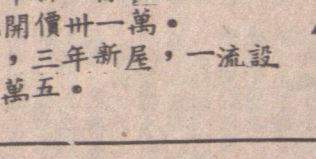 開價卅一萬。
，三年新屋，一流設
萬五。